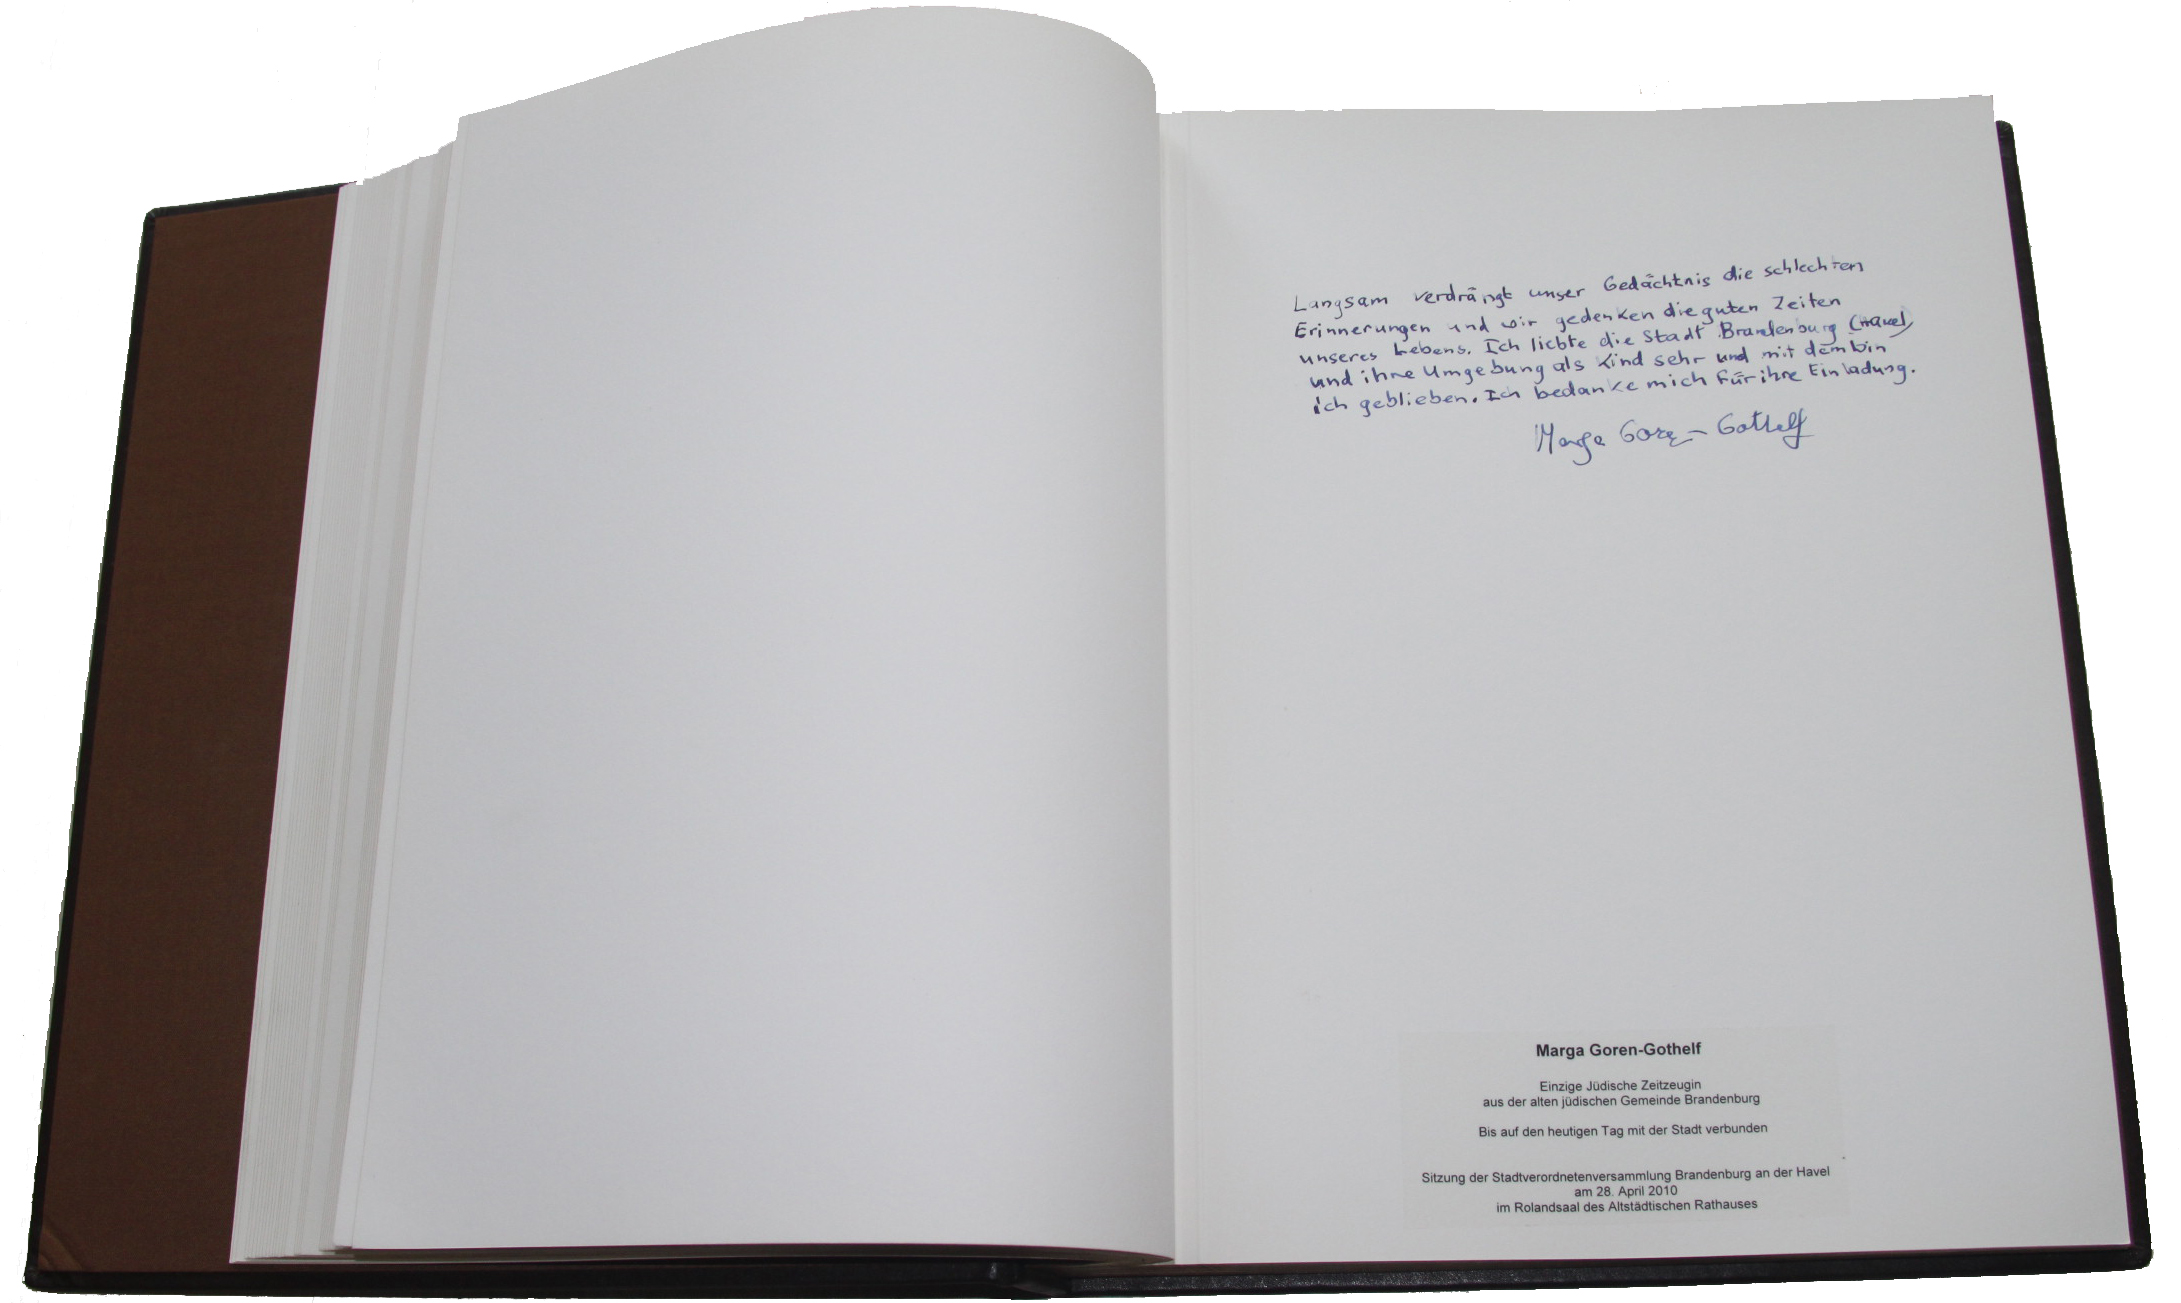 Langsam verdrängt unser Gedächtnis die schlechten
Erinnerungen und wir gedenken die guten Zeiten
unseres Lebens. Ich liebte die Stadt Brandenburg (Havel)
und ihre Umgebung als Kind sehr und mit dem bin
ich geblieben. Ich bedanke mich für ihre Einladung.
Marga Goren-Gothelf
Marga Goren-Gothelf
Einzige Jüdische Zeitzeugin
aus der alten jüdischen Gemeinde Brandenburg
Bis auf den heutigen Tag mit der Stadt verbunden
Sitzung der Stadtverordnetenversammlung Brandenburg an der Havel
am 28. April 2010
im Rolandsaal des Altstädtischen Rathauses